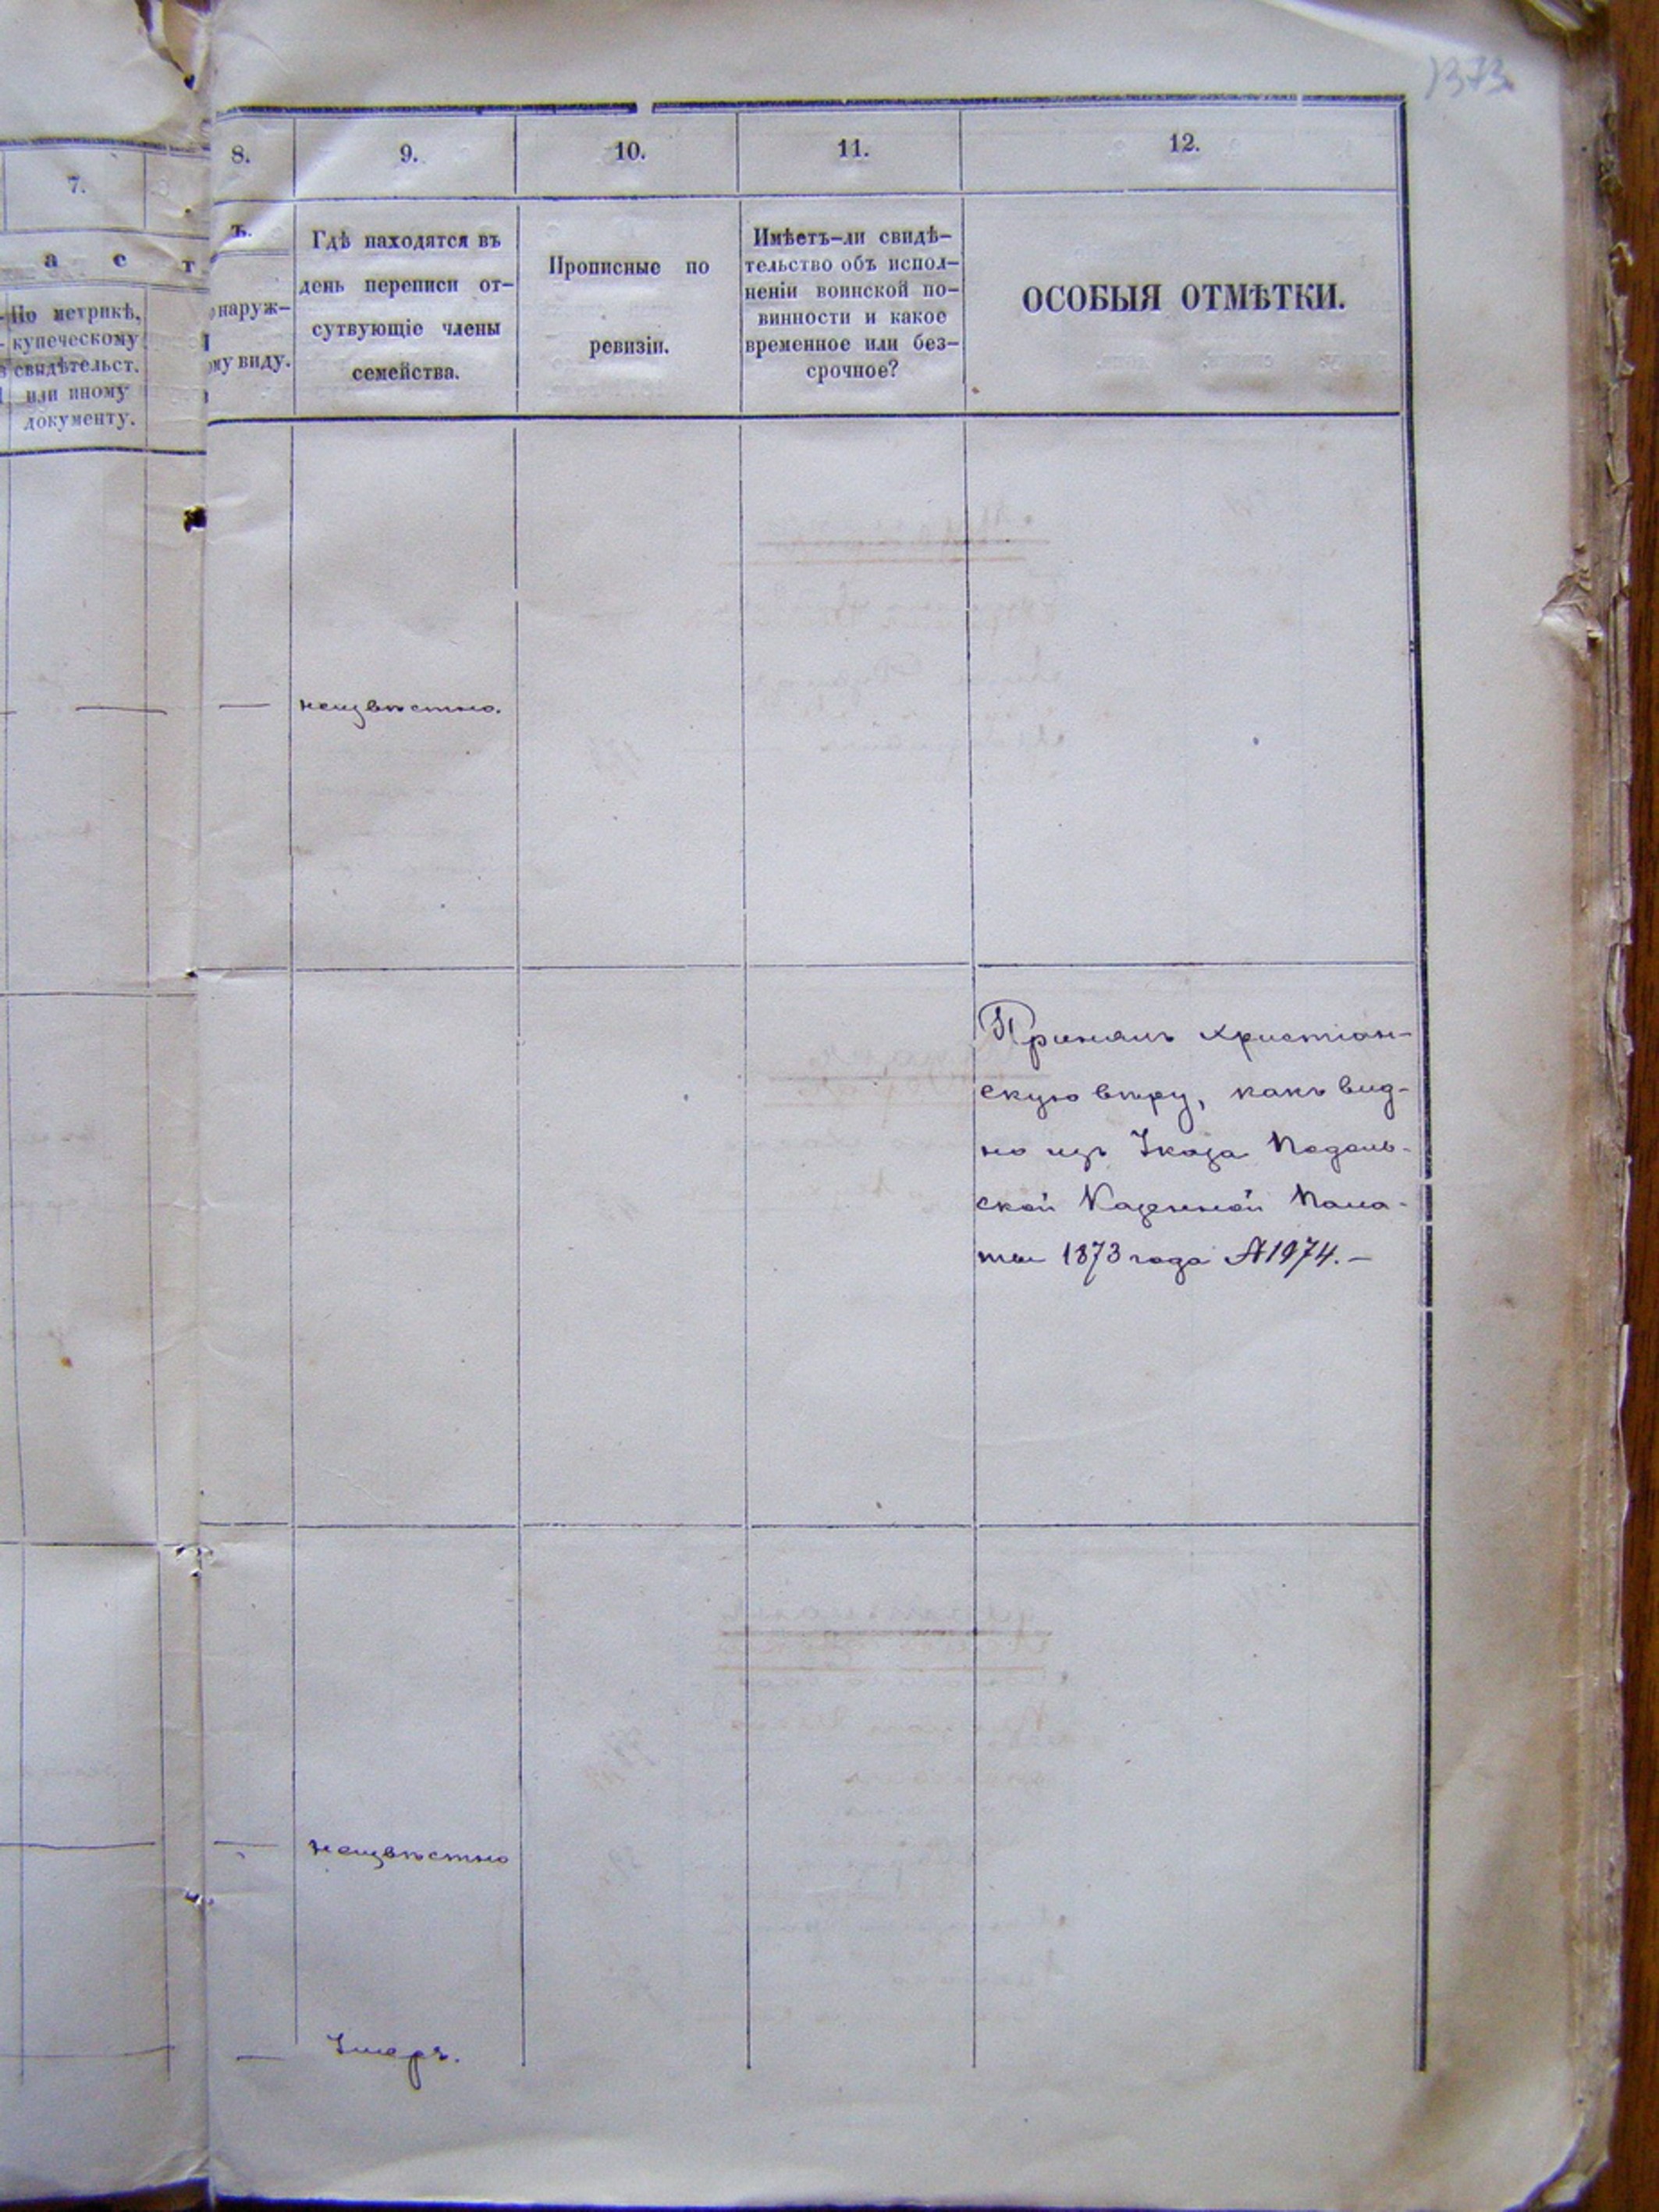 1373
7.
а с т
По метрикѣ,
купеческому
свидѣтельст.
или иному
документу.
8.
ъ.
наруж-
ому виду.
9.
Гдѣ находятся въ
день переписи от-
сутвующіе члены
семейства.
10.
Прописные по
ревизіи.
11.
Имѣетъ-ли свидѣ-
тельство объ испол-
неніи воинской по-
винности и какое
временное или без-
срочное?
12.
ОСОБЫЯ ОТМѢТКИ.
неизвѣстно.
Принялъ христіан-
скую вѣру, какъ вид-
но изъ Указа Подоль-
ской Казенной Пала-
ты 1873 года № 1974. —
неизвѣстно
Умеръ.